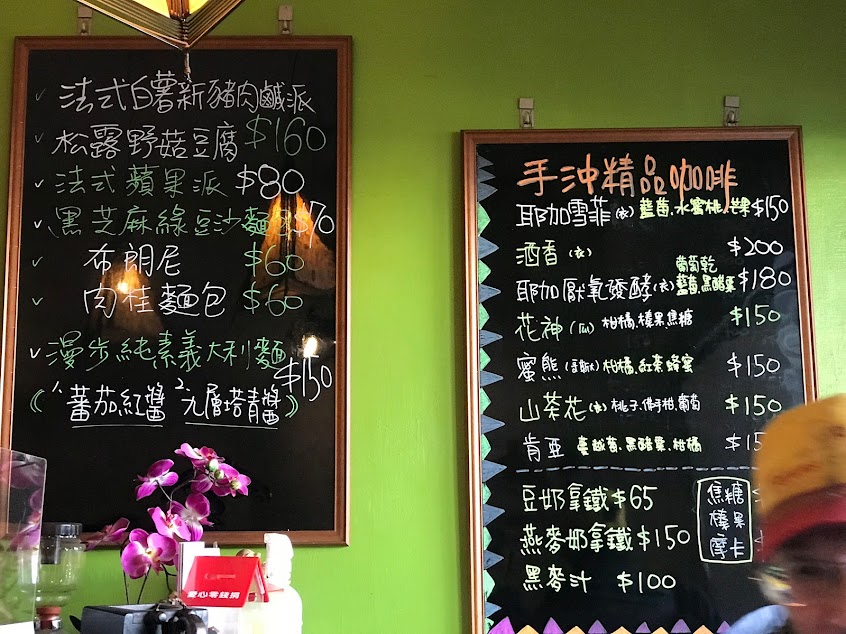 法式白薯新豬肉鹹派
松露野菇豆腐 $160
法式蘋果派 $80
黑芝麻綠豆沙麵包 $70
布朗尼 $60
肉桂麵包 $60
漫步純素義大利麵 $150
(1.蕃茄紅醬 2.九層塔青醬)
手沖精品咖啡
耶加雪菲(衣) 藍莓.水蜜桃.芒果 $150
酒香(衣) $200
耶加厭氧發酵(衣) 葡萄乾 藍莓.黑醋栗 $180
花神(瓜) 柑橘.榛果焦糖 $150
蜜熊 柑橘.紅茶.蜂蜜 $150
山茶花(衣) 桃子.佛手柑.葡萄 $150
肯亞 蔓越莓.黑醋栗.柑橘
豆奶拿鐵 $65
燕麥奶拿鐵 $150
黑麥汁 $100
焦糖
榛果
摩卡
愛心零錢捐